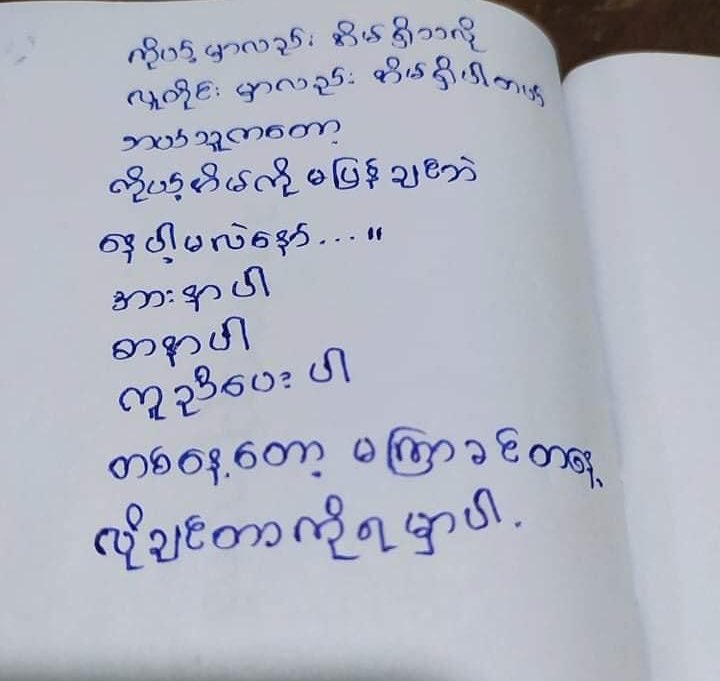 ကိုယ့်မှာလည်း အိမ်ရှိသလို
လူတိုင်းမှာလည်း အိမ်ရှိပါတယ်
ဘယ်သူကတော့
ကိုယ့်အိမ်ကို မပြန်ချင်ဘဲ
နေပါ့မလဲနော်...။
အားနာပါ
စာနာပါ
ကူညီပေးပါ
တစ်နေ့တော့ မကြာခင်တနေ့
လိုချင်တာကိုရမှာပါ.